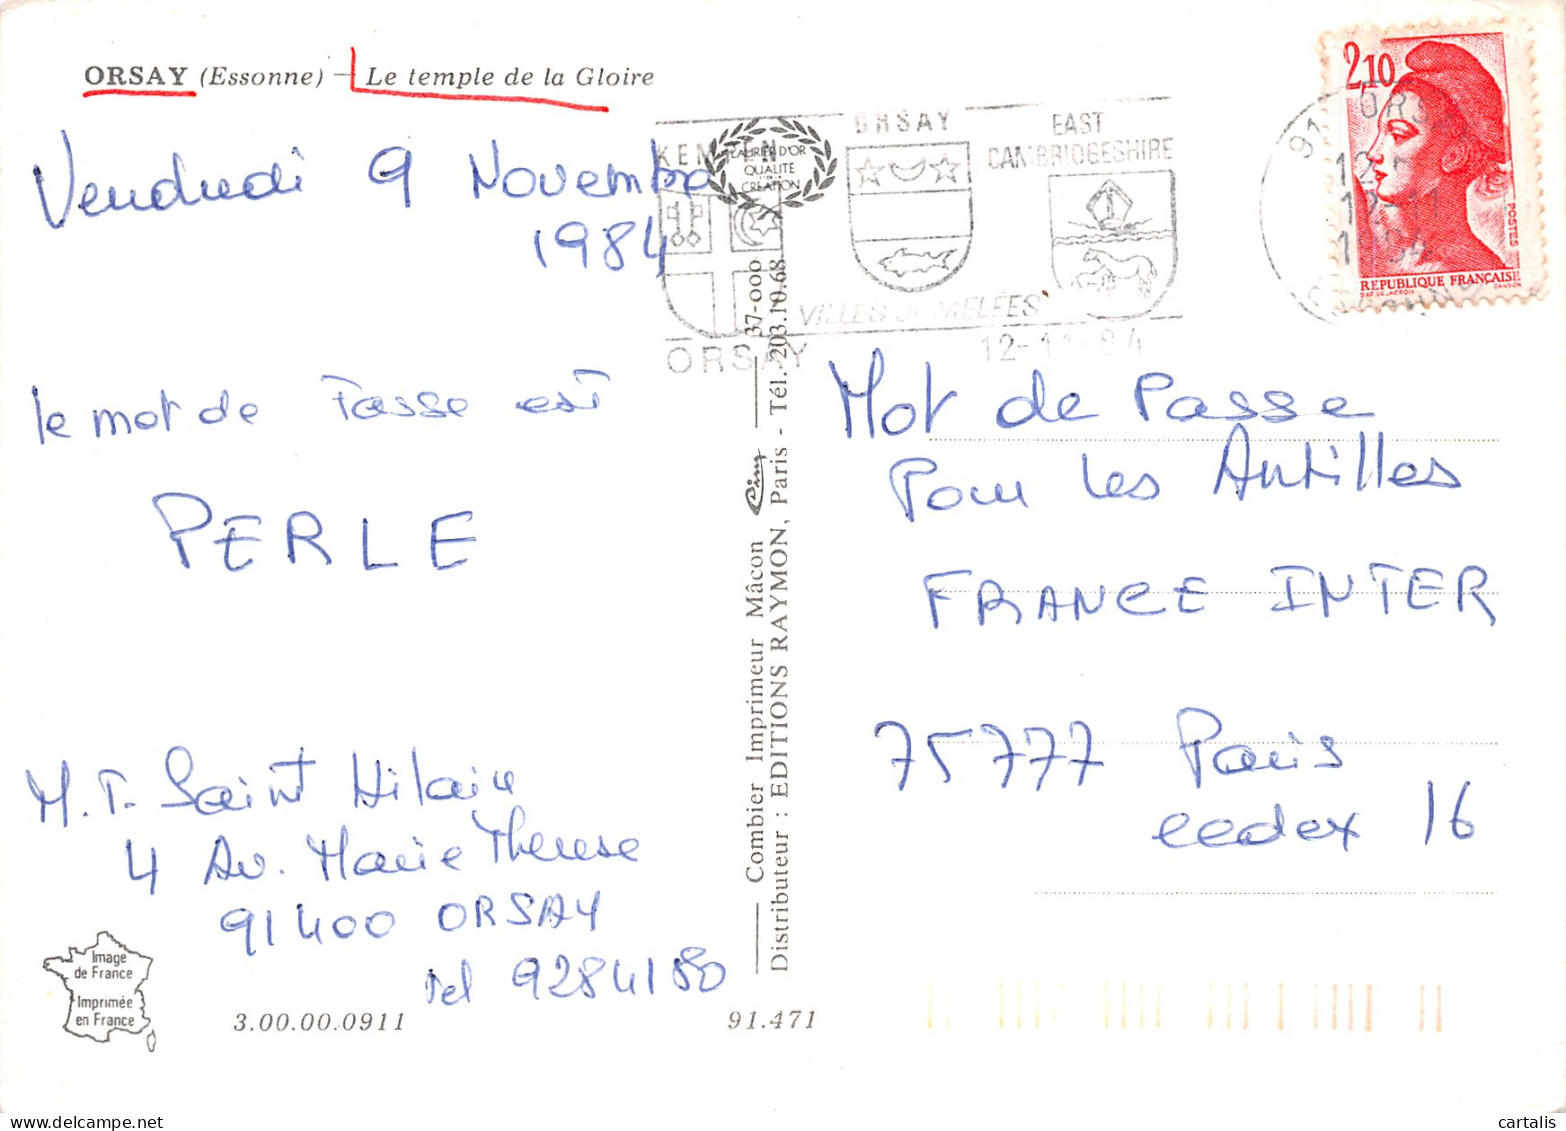 ORSAY (Essonne) — Le temple de la Gloire
Vendredi 9 Novembre
1984
le mot de Passe est
PERLE
M.T. Saint Hilaire
4 Av. Marie Therese
91400 ORSAY
tel 9284180
Image
de France
Imprimée
en France
3.00.00.0911
91.471
KEMPTEN
LAURIER D'OR
QUALITE
CREATION
ORSAY
EAST
CAMBRIDGESHIRE
VILLES JUMELÉES
ORSAY
12-11-84
Combier Imprimeur Mâcon Cim 37-000
Distributeur : EDITIONS RAYMON, Paris - Tél. 203.10.68
91 ORSAY
12-11
1984
ESSONNE
2,10
POSTES
REPUBLIQUE FRANÇAISE
D'AP. DELACROIX
GANDON
Mot de Passe
Pour les Antilles
FRANCE INTER
75777 Paris
cedex 16
cartalis